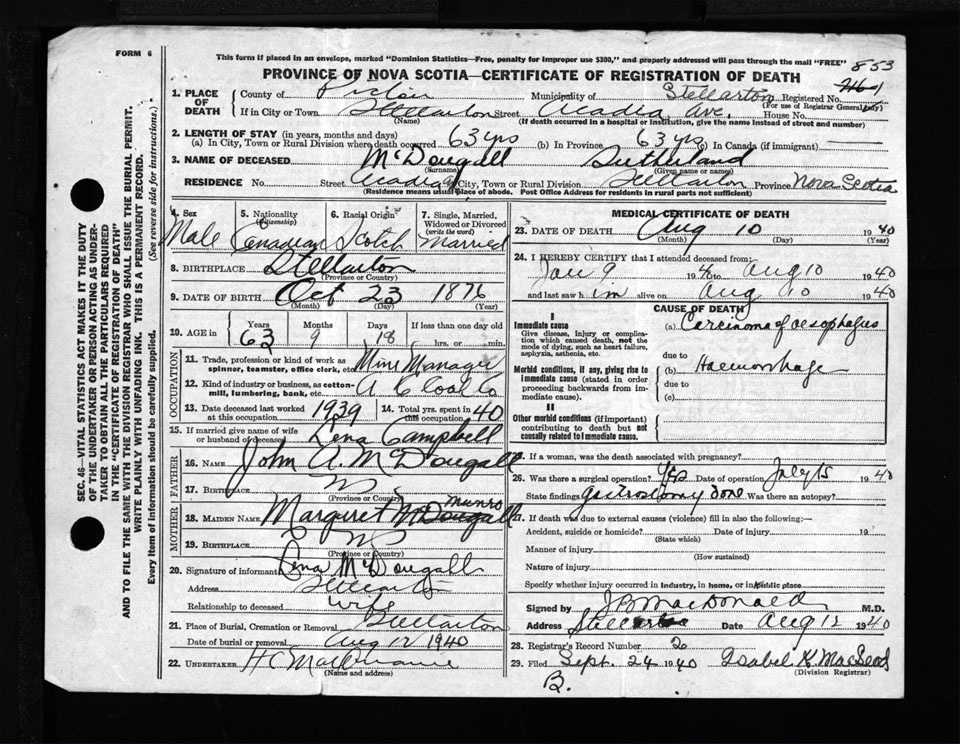 FORM 6
This form if placed in an envelope, marked "Dominion Statistics—Free, penalty for improper use $300," and properly addressed will pass through the mail "FREE"
853
PROVINCE OF NOVA SCOTIA—CERTIFICATE OF REGISTRATION OF DEATH
1. PLACE OF DEATH
County of Pictou Municipality of Stellarton Registered No.
(For use of Registrar General only)
If in City or Town Stellarton Street Acadia Ave. House No.
(Name) (If death occurred in a hospital or institution, give the name instead of street and number)
2. LENGTH OF STAY (in years, months and days)
(a) In City, Town or Rural Division where death occurred 63 yrs (b) In Province 63 yrs (c) In Canada (if immigrant)
3. NAME OF DECEASED McDougall Sutherland
(Surname) (Given name or names)
RESIDENCE No. Street Acadia City, Town or Rural Division Stellarton Province Nova Scotia
(Residence means usual place of abode. Post Office Address for residents in rural parts not sufficient)
4. Sex Male
5. Nationality (Citizenship) Canadian
6. Racial Origin Scotch
7. Single, Married, Widowed or Divorced (write the word) Married
8. BIRTHPLACE Stellarton
(Province or Country)
9. DATE OF BIRTH Oct 23 1876
(Month) (Day) (Year)
10. AGE in Years Months Days If less than one day old
63 9 18 hrs. or min.
OCCUPATION
11. Trade, profession or kind of work as spinner, teamster, office clerk, etc. Mine Manager
12. Kind of industry or business, as cotton-mill, lumbering, bank, etc. A C Coal Co
13. Date deceased last worked at this occupation 1939
14. Total yrs. spent in this occupation 40
15. If married give name of wife or husband of deceased Lena Campbell
FATHER
16. NAME John A. McDougall
17. BIRTHPLACE N S
(Province or Country)
MOTHER
Munro
18. MAIDEN NAME Margaret McDougall
19. BIRTHPLACE N S
(Province or Country)
20. Signature of informant Lena McDougall
Address Stellarton
Relationship to deceased Wife
21. Place of Burial, Cremation or Removal Stellarton
Date of burial or removal Aug 12 1940
22. UNDERTAKER H C
(Name and address)
MEDICAL CERTIFICATE OF DEATH
23. DATE OF DEATH Aug 10 1940
(Month) (Day) (Year)
24. I HEREBY CERTIFY that I attended deceased from:
Jan 9 1940 to Aug 10 1940
and last saw him alive on Aug 10 1940
CAUSE OF DEATH
I
Immediate cause
Give disease, injury or complication which caused death, not the mode of dying, such as heart failure, asphyxia, asthenia, etc.
(a) Carcinoma of oesophagus
due to
Morbid conditions, if any, giving rise to immediate cause (stated in order proceeding backwards from immediate cause).
(b) Haemorrhage
due to
(c)
II
Other morbid conditions (if important) contributing to death but not causally related to immediate cause.
25. If a woman, was the death associated with pregnancy?
26. Was there a surgical operation? Yes Date of operation July 15 1940
State findings gastrostomy done Was there an autopsy?
27. If death was due to external causes (violence) fill in also the following:—
Accident, suicide or homicide? Date of injury 19
(State which)
Manner of injury
(How sustained)
Nature of injury
Specify whether injury occurred in industry, in home, or in public place
Signed by J B MacDonald M.D.
Address Stellarton Date Aug 12 1940
28. Registrar's Record Number 2
29. Filed Sept. 24 1940 Isabel K. MacLeod
(Division Registrar)
B.
SEC. 46—VITAL STATISTICS ACT MAKES IT THE DUTY
OF THE UNDERTAKER OR PERSON ACTING AS UNDER-
TAKER TO OBTAIN ALL THE PARTICULARS REQUIRED
IN THE "CERTIFICATE OF REGISTRATION OF DEATH"
AND TO FILE THE SAME WITH THE DIVISION REGISTRAR WHO SHALL ISSUE THE BURIAL PERMIT.
WRITE PLAINLY WITH UNFADING INK. THIS IS A PERMANENT RECORD.
Every item of information should be carefully supplied. (See reverse side for instructions.)